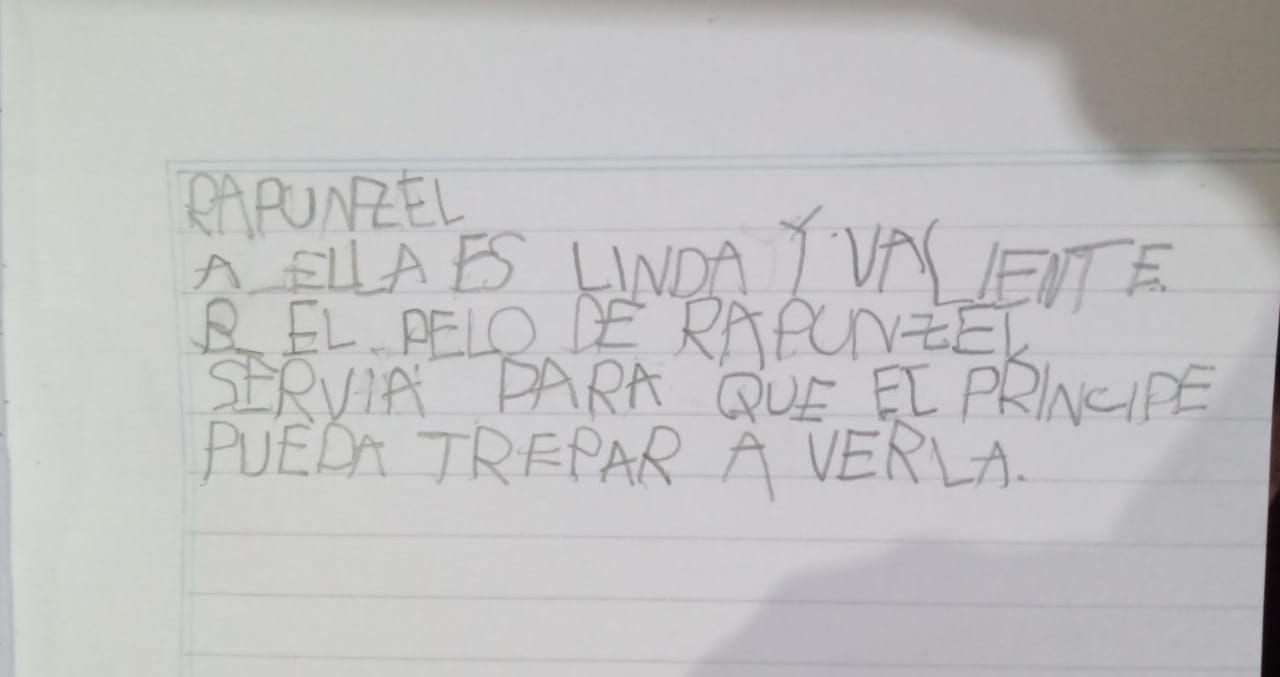 RAPUNZEL
A ELLA ES LINDA Y VALIENTE.
B EL PELO DE RAPUNZEL
SERVIA PARA QUE EL PRINCIPE
PUEDA TREPAR A VERLA.